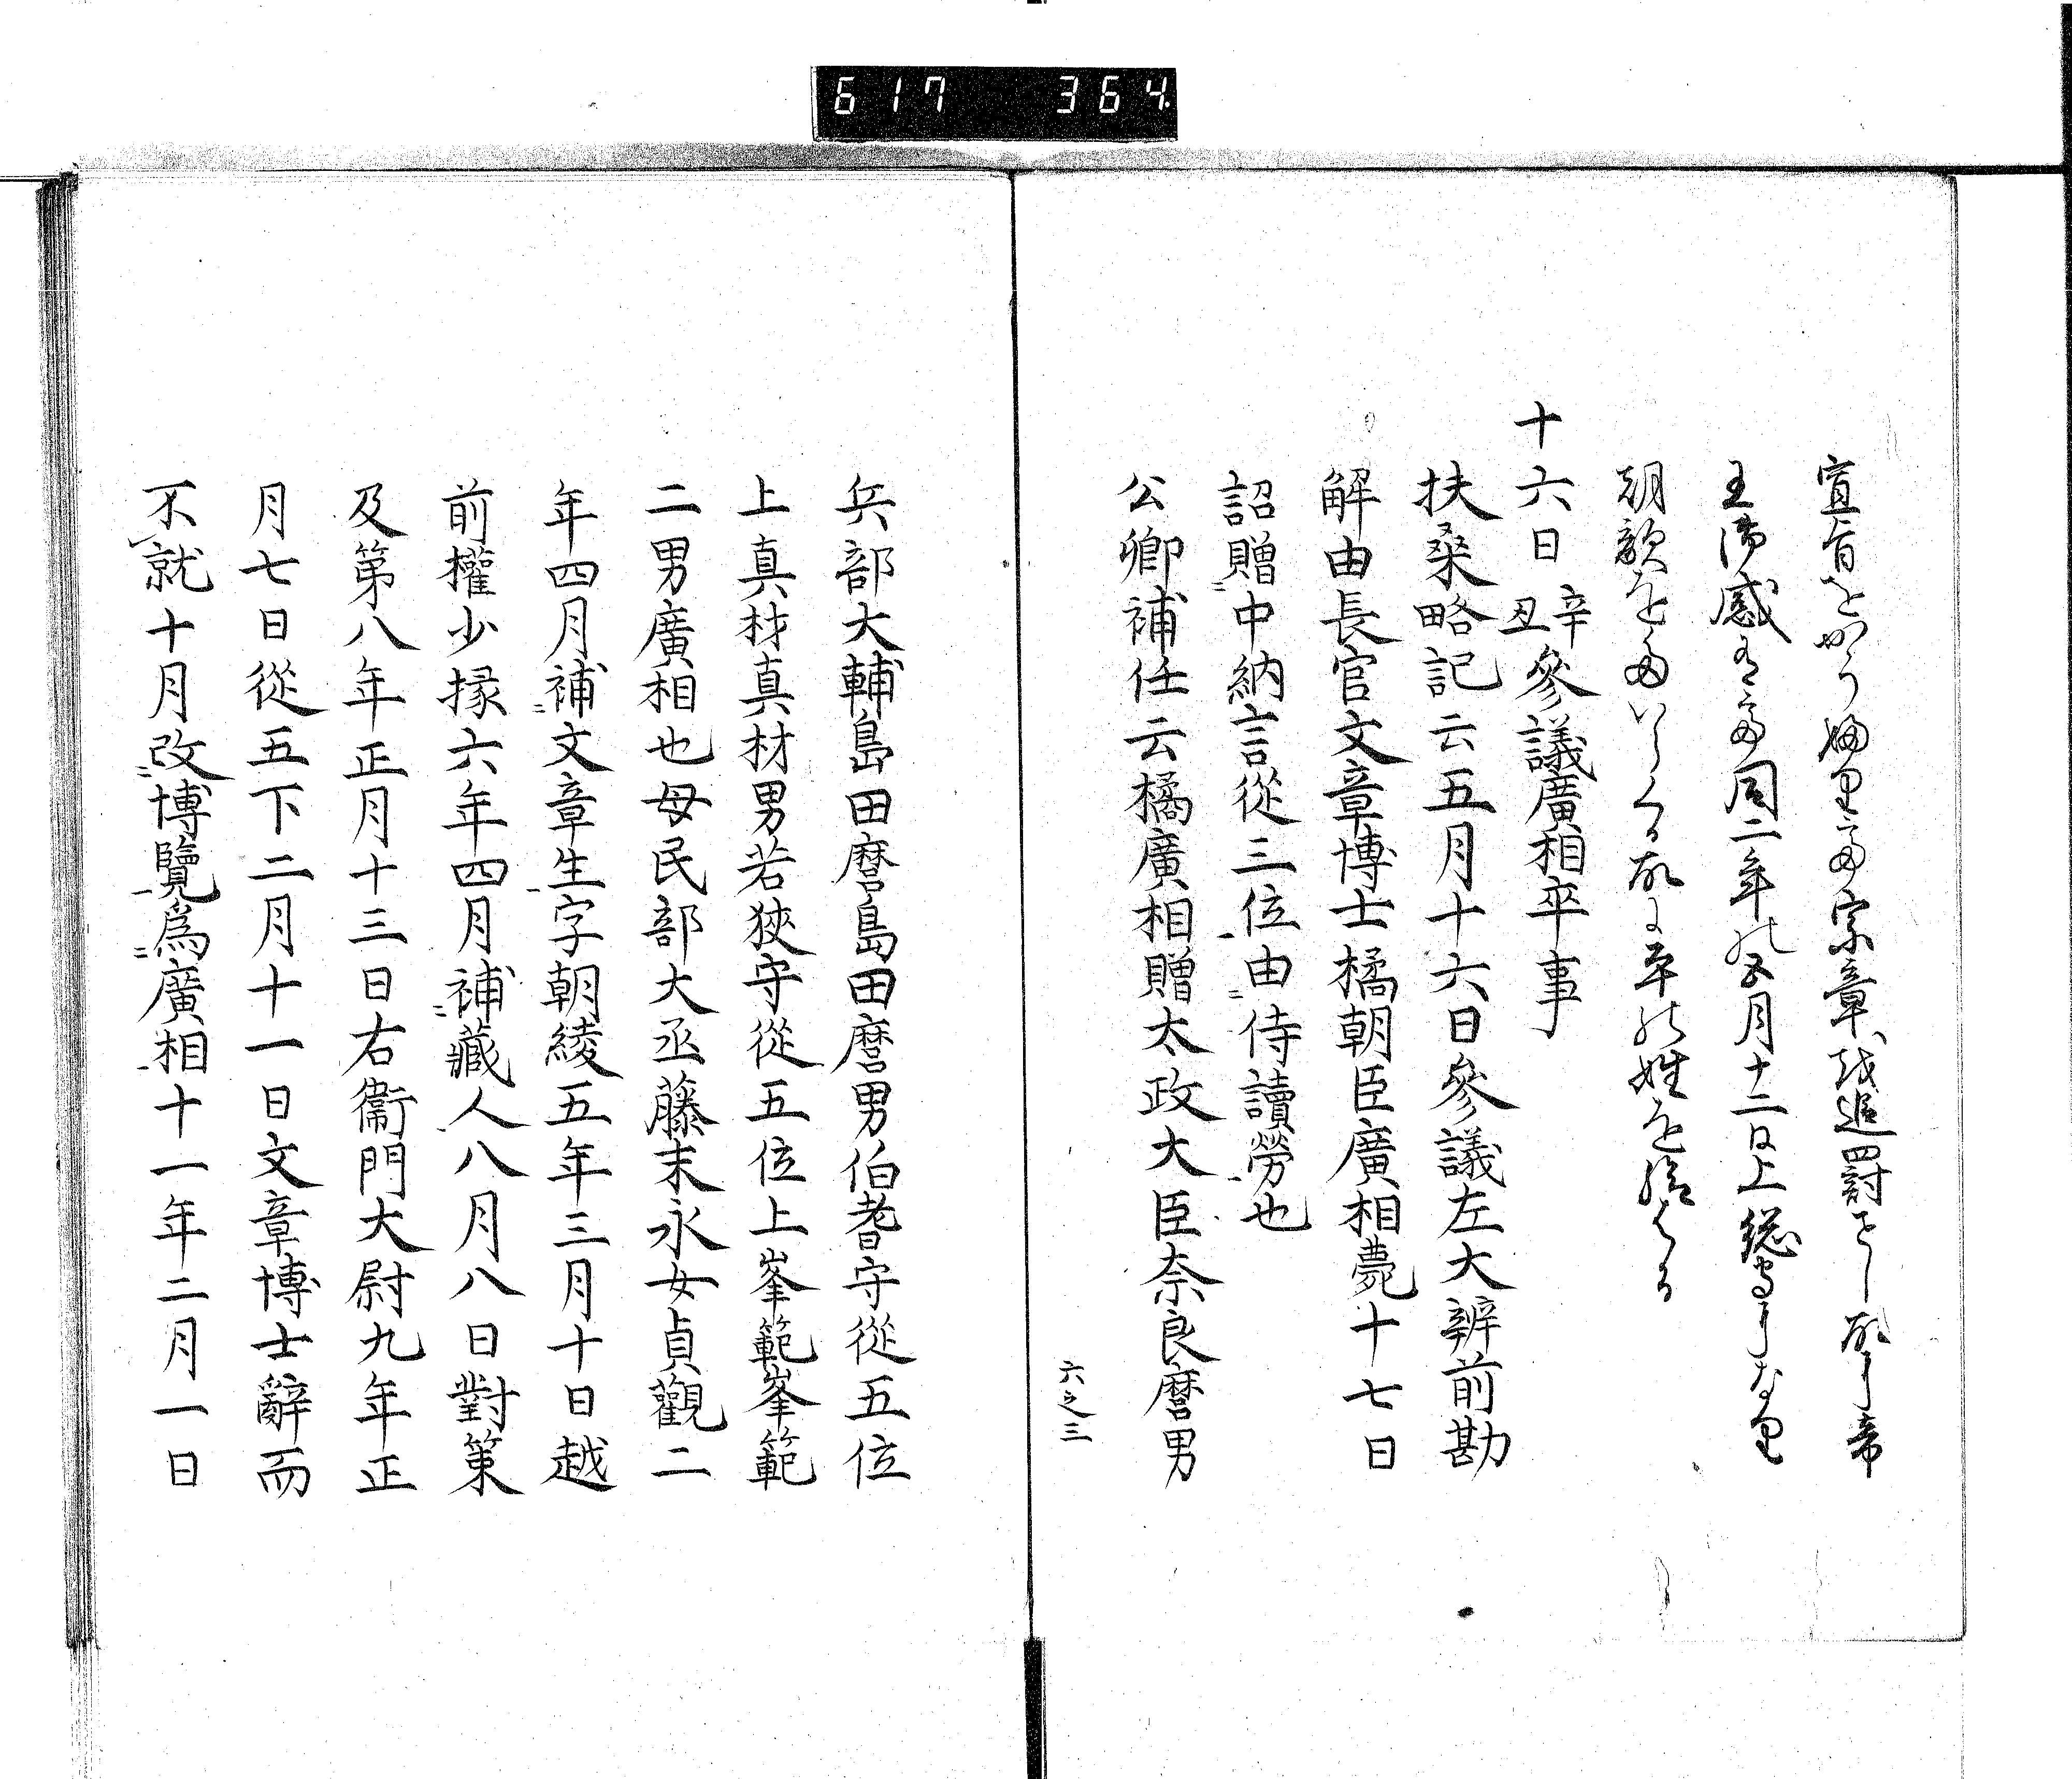 617 364.
宣旨をかうふりて宗章を追罰せし故に帝
王御感ありて同二年の五月十二日上総守になり
朝敵をたいらくる故に平の姓を給はる
十六日辛丑參議廣相卒事
扶桑略記云五月十六日參議左大辨前勘
解由長官文章博士橘朝臣廣相薨十七日
詔贈中納言從三位由侍讀勞也
公卿補任云橘廣相贈太政大臣奈良麿男
六之三
兵部大輔島田麿島田麿男伯耆守從五位
上真材真材男若狹守從五位上峯範峯範
二男廣相也母民部大丞藤末永女貞觀二
年四月補文章生字朝綾五年三月十日越
前權少掾六年四月補藏人八月八日對策
及第八年正月十三日右衞門大尉九年正
月七日從五下二月十一日文章博士辭而
不就十月改博覽爲廣相十一年二月一日